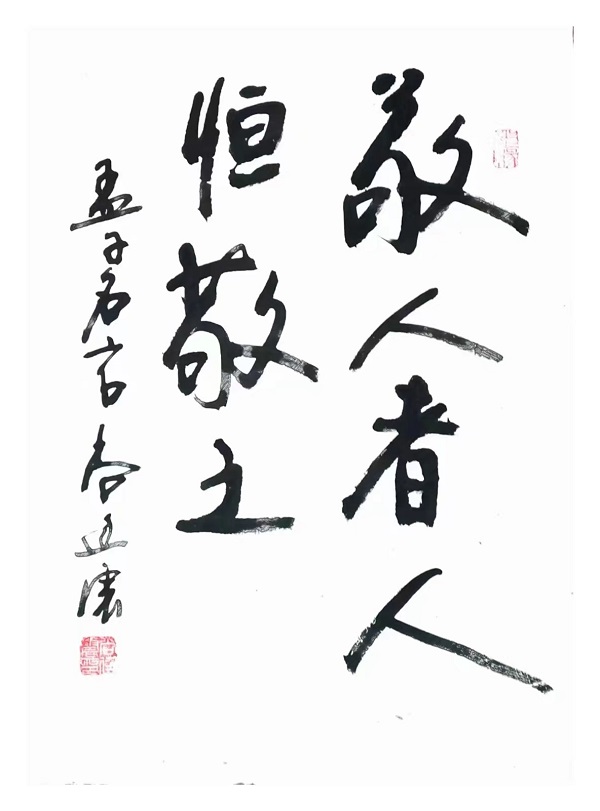 敬人者人
恒敬之
孟子名言